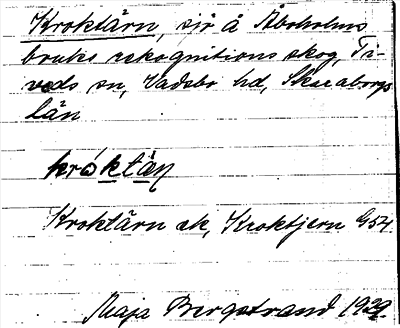 Kroktärn, sjö å Aboholms
bruks rekognitions skog, Ti-
veds sn, Vadsbo hd, Skaraborgs
län
krȯktȧn
Kroktärn ek, Kroktjern G54
Maja Bergstrand 1929.